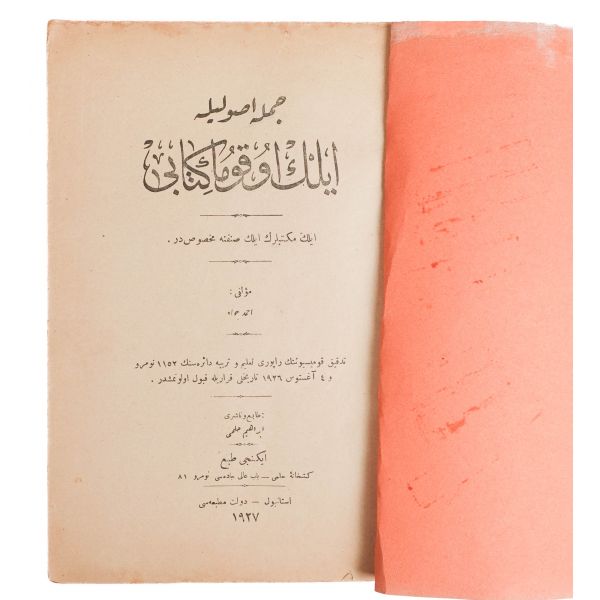 جمله اصولیله
ایلك اوقوما كتابی
ایلك مكتبلرك ایلك صنفنه مخصوصدر .
مؤلفی :
احمد جواد
تدقیق قومیسیوننك راپوری تعلیم و تربیه دائره‌سنك ١١٥٢ نومرو
و ٤ آغستوس ١٩٢٦ تاریخلی قراریله قبول اولونمشدر .
طابع و ناشری :
ابراهیم حلمی
ایكنجی طبع
كتبخانهٔ حلمی — باب عالی جاده‌سی نومرو ٨١
استانبول — دولت مطبعه‌سی
١٩٢٧